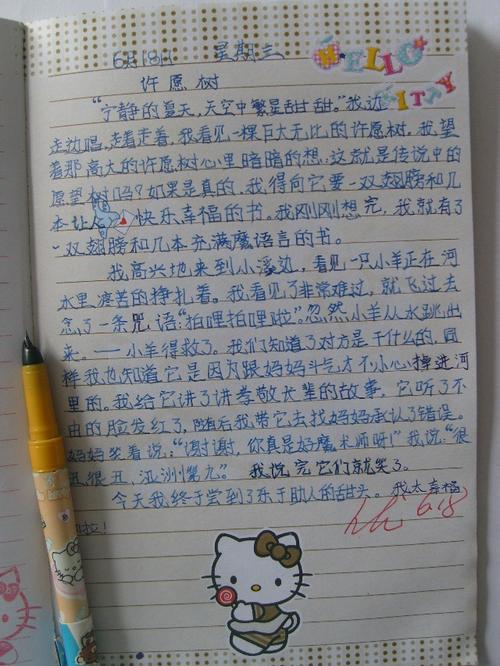 6月18日 星期三
HELLO
KITTY
许愿树
"宁静的夏天,天空中繁星甜甜。"我边
走边唱,走着走着,我看见一棵巨大无比的许愿树,我望
着那高大的许愿树心里暗暗的想:这就是传说中的
愿望树吗?如果是真的,我得向它要一双翅膀和几
本让人快乐幸福的书。我刚刚想完,我就有了
一双翅膀和几本充满魔语言的书。
我高兴地来到小溪边,看见一只小羊正在河
水里痛苦的挣扎着。我看见了非常难过,就飞过去
念了一条咒语:"拍哩拍哩啦"忽然小羊从水跳出
来。——小羊得救了。我们知道了对方是干什么的,同
样我也知道它是因为跟妈妈斗气才不小心掉进河
里的。我给它讲了讲孝敬长辈的故事,它听了不
由的脸发红了,随后我带它去找妈妈承认了错误。
妈妈笑着说:"谢谢,你真是好魔术师呀!"我说:"很
丑,很丑,亚洲第九。"我说完它们就笑了。
今天我终于尝到了乐于助人的甜头。我太幸福
啦!
6.18